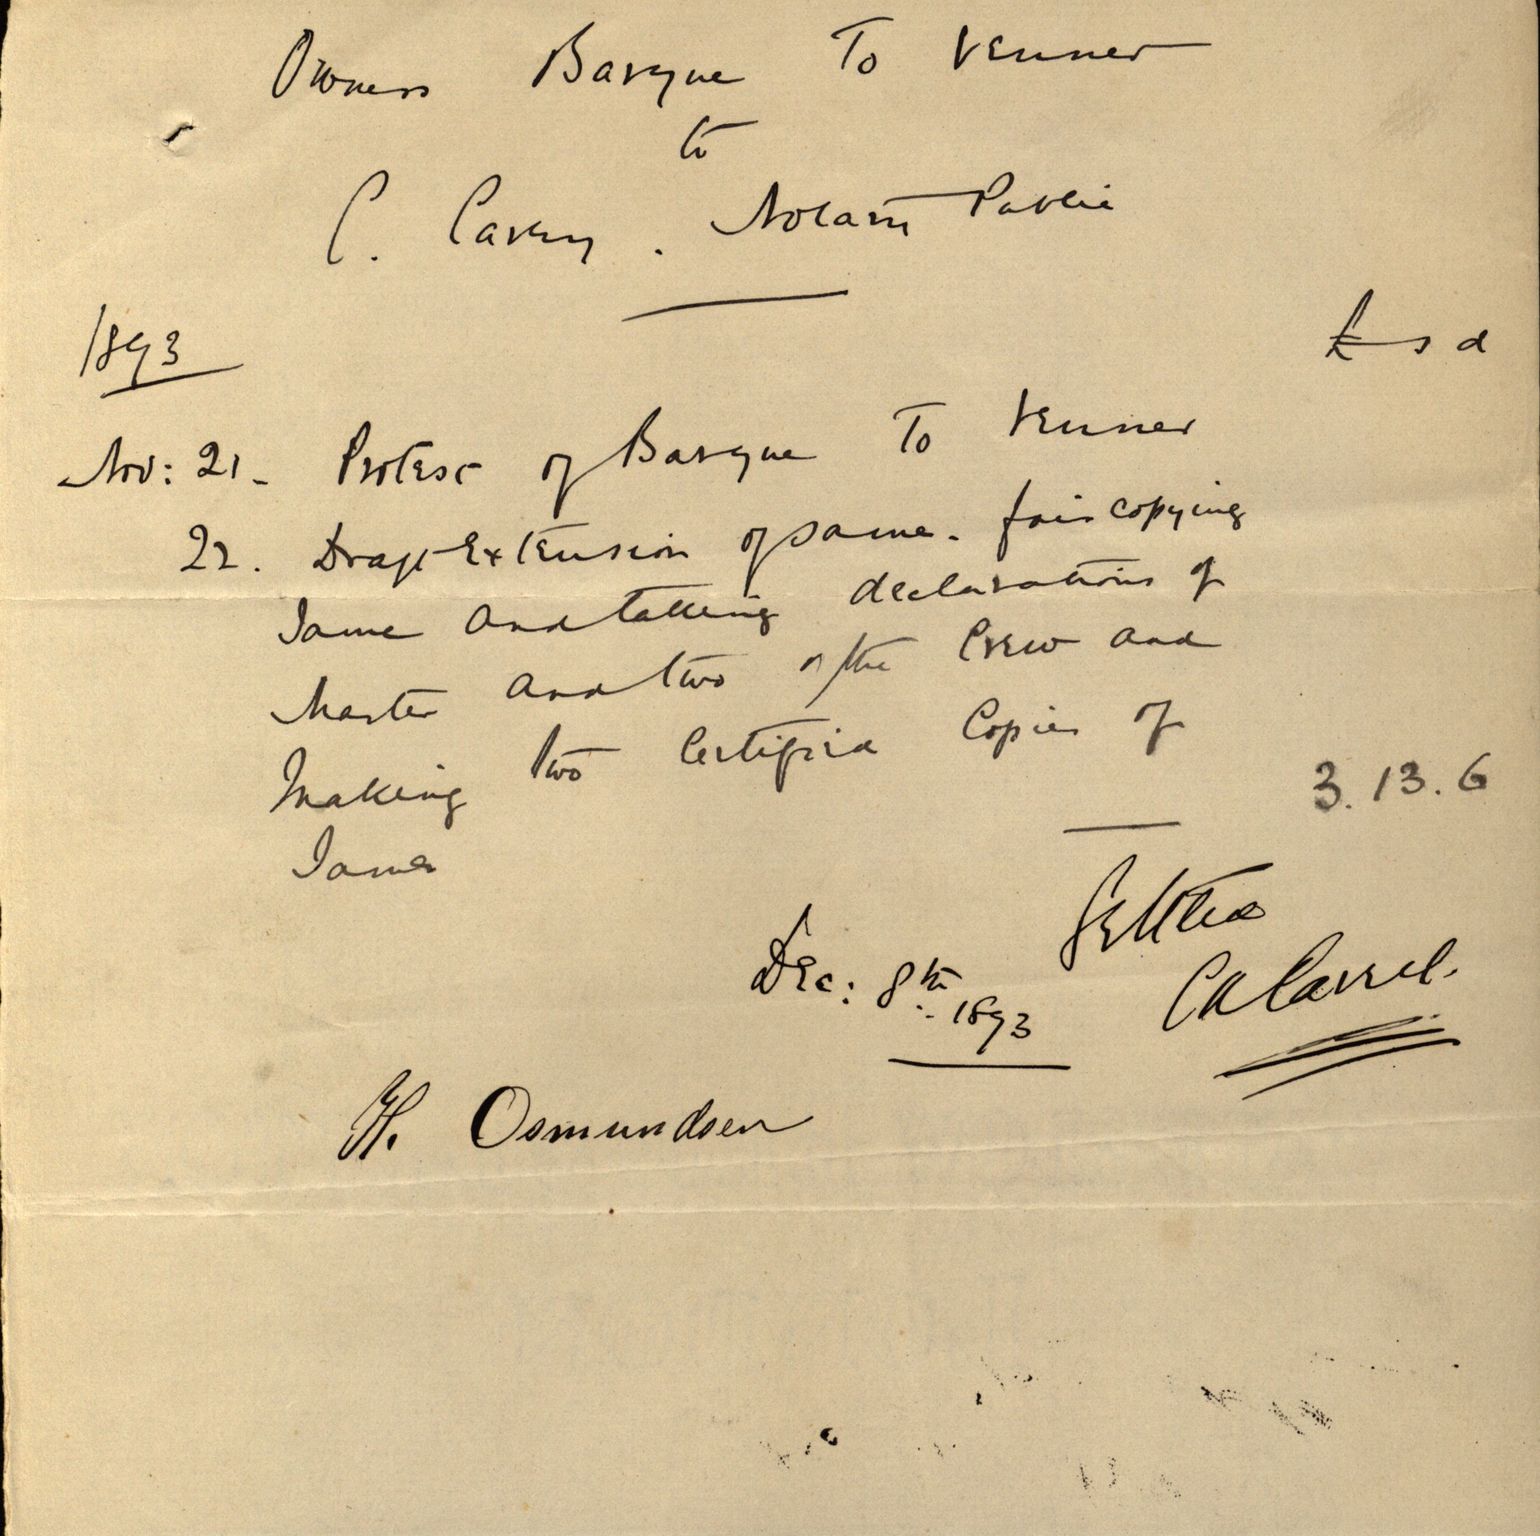 Owners Barque To Venner
to
C. Carey. Notary Public
1893
£ s d
Nov: 21. Protest of Barque To Venner
22. Draft Extension of same. fair copying
same and taking declarations of
Master and two of the Crew and
Making two Certified Copies of
3. 13. 6
Same
Settled
Dec: 8th 1893
H. Osmundsen